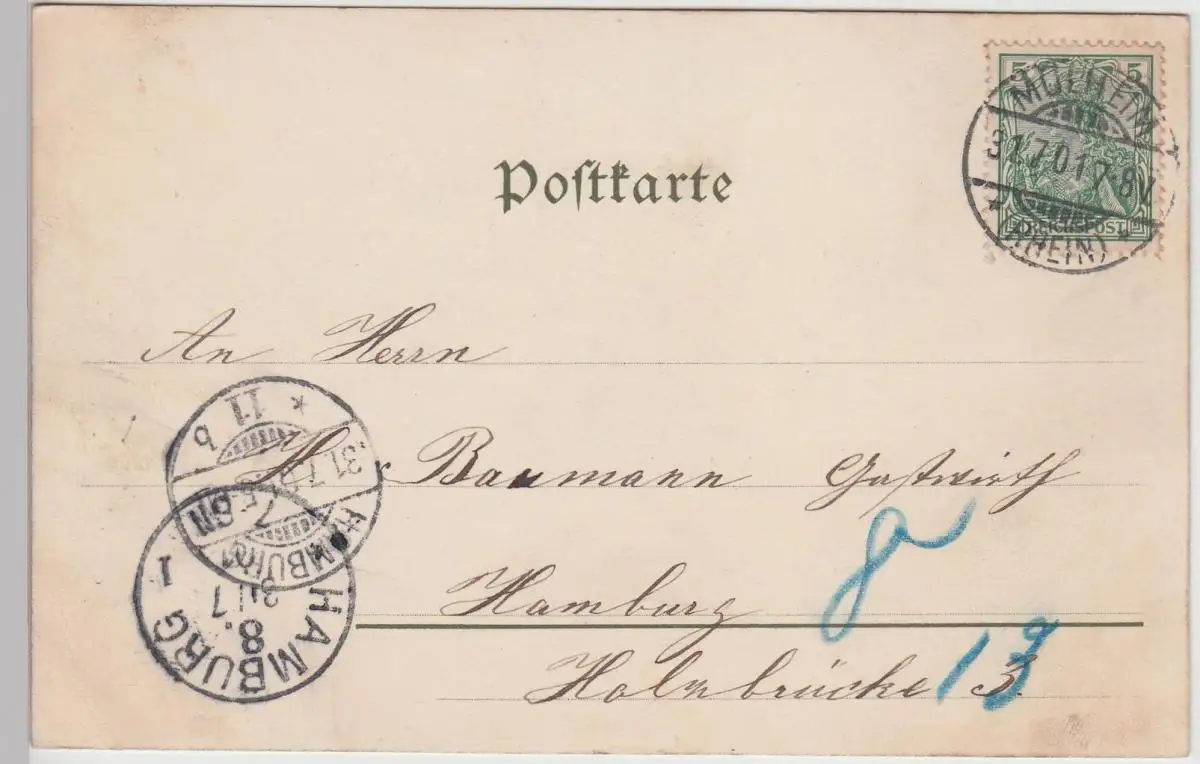 Postkarte
5 5
REICHSPOST
MÜLHEIM
31.7.01 7-8V
(RHEIN)
An Herrn
H. Baumann Gastwirth
Hamburg
Holzbrücke 3.
13
* 11 b
31.7.
7 5-6N
HAMBURG
HAMBURG 1
31.7
8.